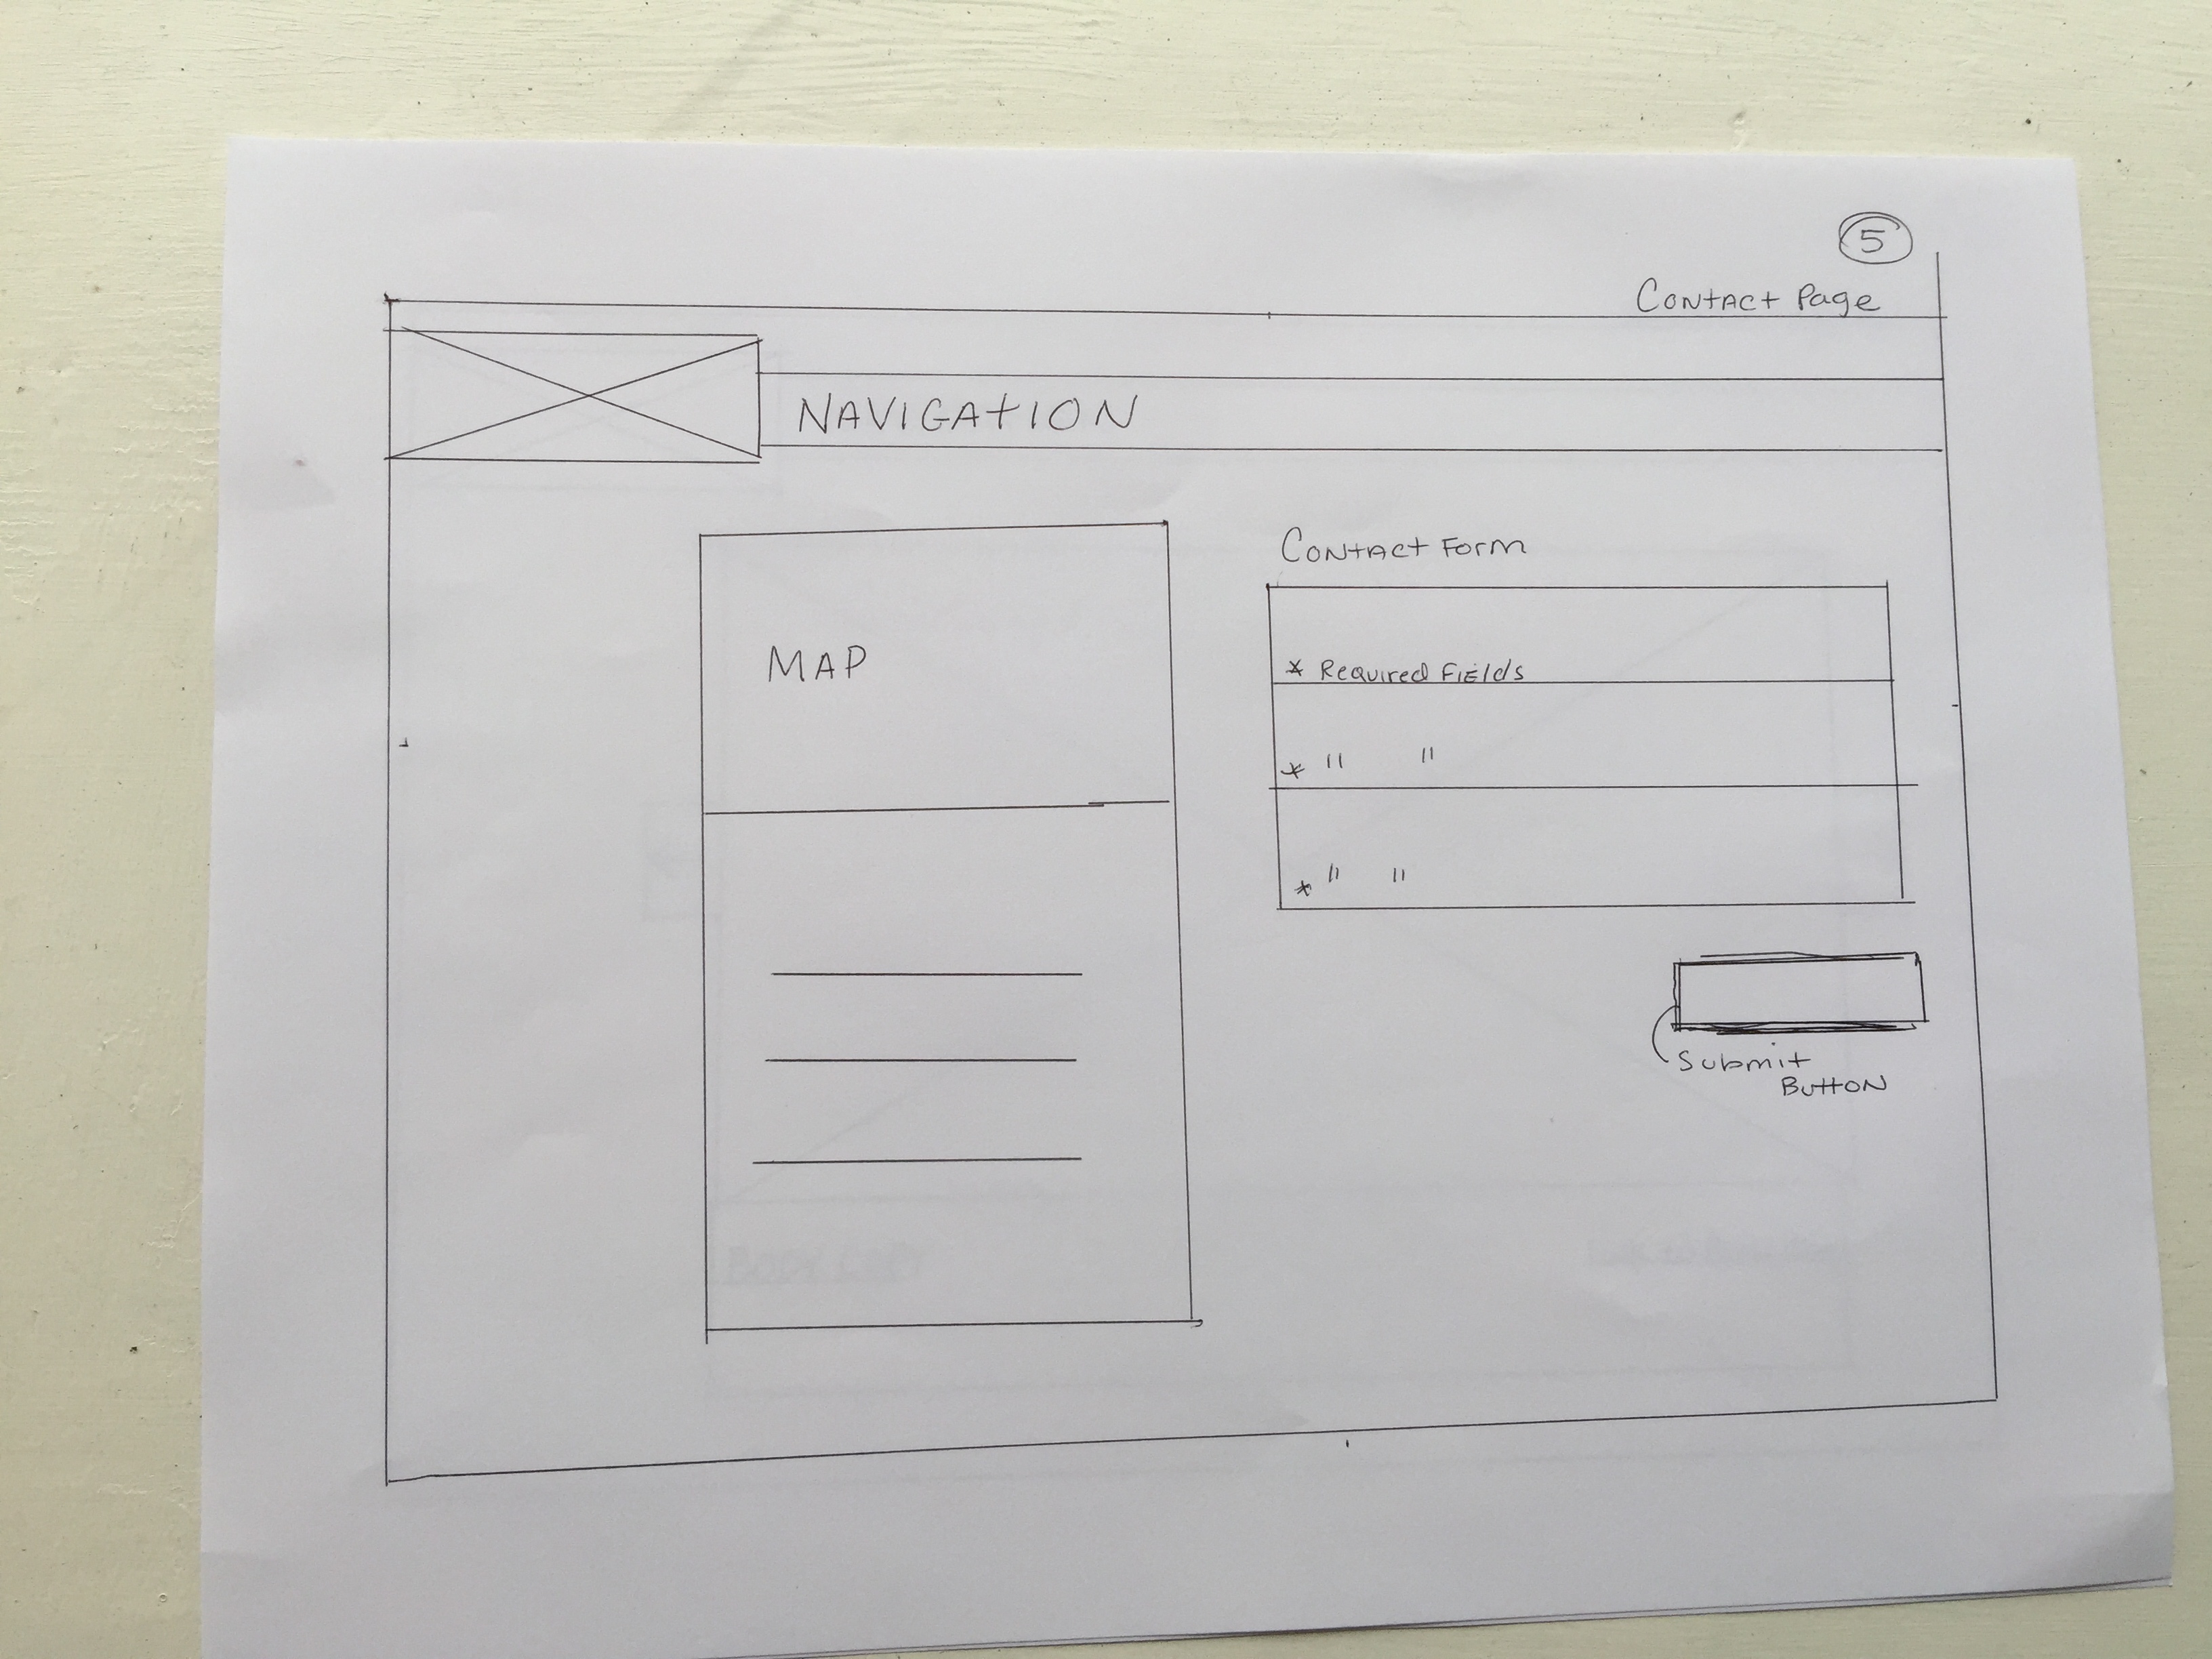 5
Contact Page
NAVIGATION
MAP
Contact Form
* Required Fields
* " "
* " "
Submit
Button